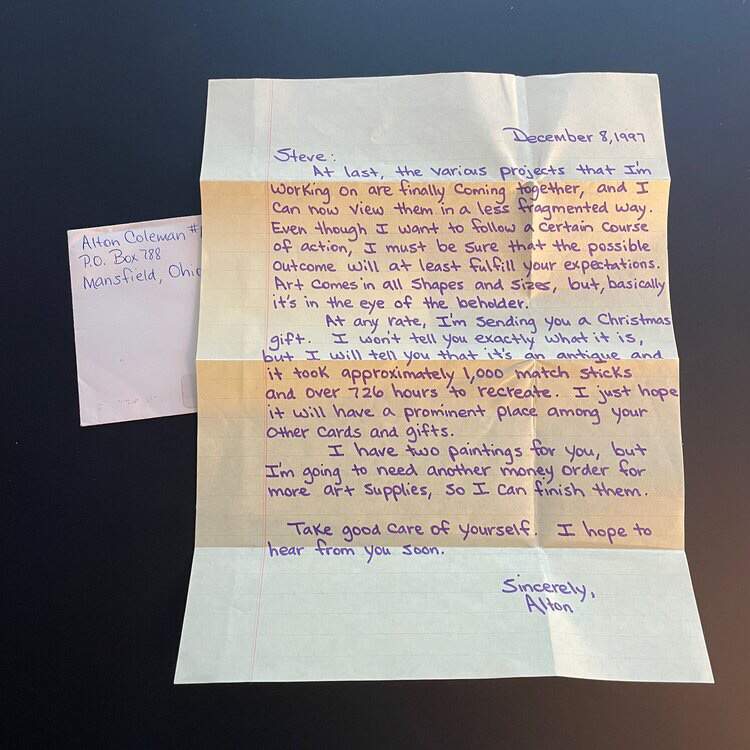 December 8, 1997
Steve:
At last, the various projects that I'm
working on are finally coming together, and I
can now view them in a less fragmented way.
Even though I want to follow a certain course
of action, I must be sure that the possible
outcome will at least fulfill your expectations.
Art comes in all shapes and sizes, but, basically
it's in the eye of the beholder.
At any rate, I'm sending you a Christmas
gift. I won't tell you exactly what it is,
but I will tell you that it's an antique and
it took approximately 1,000 match sticks
and over 726 hours to recreate. I just hope
it will have a prominent place among your
other cards and gifts.
I have two paintings for you, but
I'm going to need another money order for
more art supplies, so I can finish them.
Take good care of yourself. I hope to
hear from you soon.
Sincerely,
Alton
Alton Coleman #
P.O. Box 788
Mansfield, Ohio